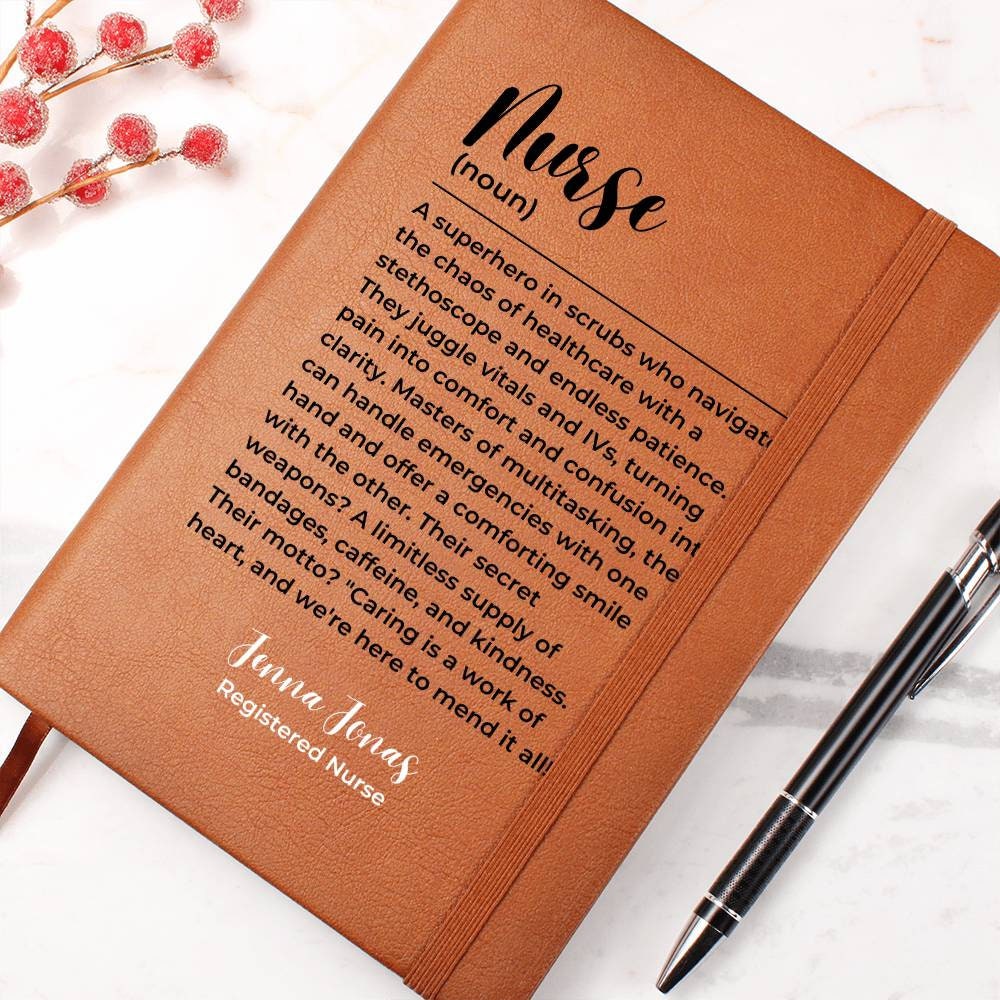 Nurse
(noun)
A superhero in scrubs who navigat
the chaos of healthcare with a
stethoscope and endless patience.
They juggle vitals and IVs, turning
pain into comfort and confusion int
clarity. Masters of multitasking, the
can handle emergencies with one
hand and offer a comforting smile
with the other. Their secret
weapons? A limitless supply of
bandages, caffeine, and kindness.
Their motto? "Caring is a work of
heart, and we're here to mend it all!
Jenna Jonas
Registered Nurse